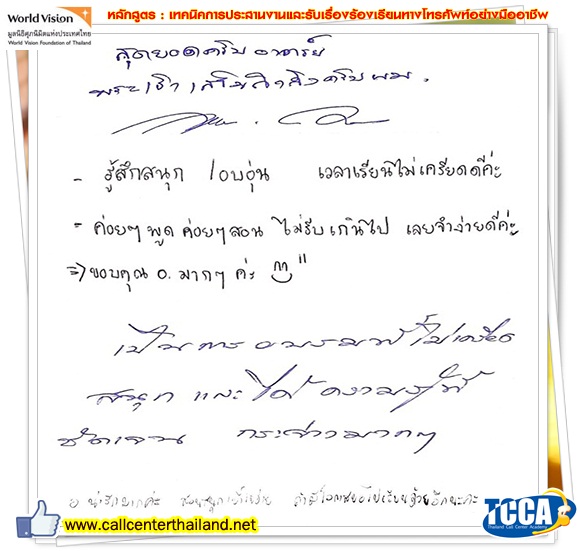 World Vision
มูลนิธิศุภนิมิตแห่งประเทศไทย
World Vision Foundation of Thailand
หลักสูตร : เทคนิคการประสานงานและรับเรื่องร้องเรียนทางโทรศัพท์อย่างมืออาชีพ
สุดยอดครับอาจารย์
พระเจ้า
- รู้สึกสนุก / อบอุ่น เวลาเรียนไม่เครียดดีค่ะ
- ค่อยๆ พูด ค่อยๆ สอน ไม่รีบเกินไป เลยจำง่ายดีค่ะ
⇒ ขอบคุณ อ. มากๆ ค่ะ
เป็นการอบรมที่ไม่เครียด
สนุก และได้ความรู้ที่
ชัดเจน กระจ่างมากๆ
อ น่ารักมากค่ะ
www.callcenterthailand.net
TCCA
Thailand Call Center Academy